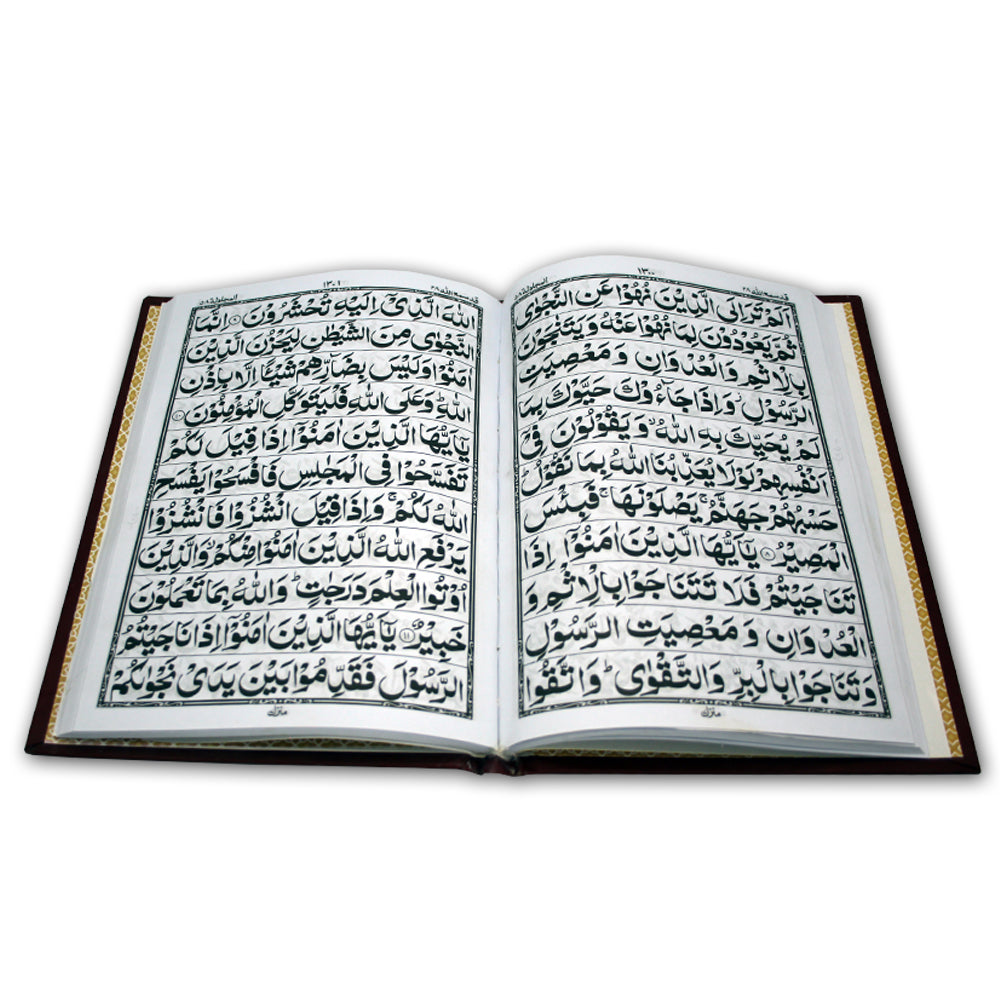 ١٣٠٠
قد سمع الله ٢٨
المجادلة ٥٨
اَلَمْ تَرَ اِلَى الَّذِيْنَ نُهُوْا عَنِ النَّجْوٰى
ثُمَّ يَعُوْدُوْنَ لِمَا نُهُوْا عَنْهُ وَيَتَنٰجَوْنَ
بِالْاِثْمِ وَالْعُدْوَانِ وَمَعْصِيَتِ
الرَّسُوْلِ ۫ وَاِذَا جَآءُوْكَ حَيَّوْكَ بِمَا
لَمْ يُحَيِّكَ بِهِ اللّٰهُ ۙ وَيَقُوْلُوْنَ فِيْۤ
اَنْفُسِهِمْ لَوْلَا يُعَذِّبُنَا اللّٰهُ بِمَا نَقُوْلُ ؕ
حَسْبُهُمْ جَهَنَّمُ ۚ يَصْلَوْنَهَا ۚ فَبِئْسَ
الْمَصِيْرُ ٨ يٰۤاَيُّهَا الَّذِيْنَ اٰمَنُوْۤا اِذَا
تَنَاجَيْتُمْ فَلَا تَتَنَاجَوْا بِالْاِثْمِ وَ
الْعُدْوَانِ وَمَعْصِيَتِ الرَّسُوْلِ
وَتَنَاجَوْا بِالْبِرِّ وَالتَّقْوٰى ؕ وَاتَّقُوا
منزل
١٣٠١
قد سمع الله ٢٨
المجادلة ٥٨
اللّٰهَ الَّذِيْۤ اِلَيْهِ تُحْشَرُوْنَ ٩ اِنَّمَا
النَّجْوٰى مِنَ الشَّيْطٰنِ لِيَحْزُنَ الَّذِيْنَ
اٰمَنُوْا وَلَيْسَ بِضَآرِّهِمْ شَيْـًٔا اِلَّا بِاِذْنِ
اللّٰهِ ؕ وَعَلَى اللّٰهِ فَلْيَتَوَكَّلِ الْمُؤْمِنُوْنَ ١٠
يٰۤاَيُّهَا الَّذِيْنَ اٰمَنُوْۤا اِذَا قِيْلَ لَكُمْ
تَفَسَّحُوْا فِي الْمَجٰلِسِ فَافْسَحُوْا يَفْسَحِ
اللّٰهُ لَكُمْ ۚ وَاِذَا قِيْلَ انْشُزُوْا فَانْشُزُوْا
يَرْفَعِ اللّٰهُ الَّذِيْنَ اٰمَنُوْا مِنْكُمْ ۙ وَالَّذِيْنَ
اُوْتُوا الْعِلْمَ دَرَجٰتٍ ؕ وَاللّٰهُ بِمَا تَعْمَلُوْنَ
خَبِيْرٌ ١١ يٰۤاَيُّهَا الَّذِيْنَ اٰمَنُوْۤا اِذَا نَاجَيْتُمُ
الرَّسُوْلَ فَقَدِّمُوْا بَيْنَ يَدَيْ نَجْوٰىكُمْ
منزل